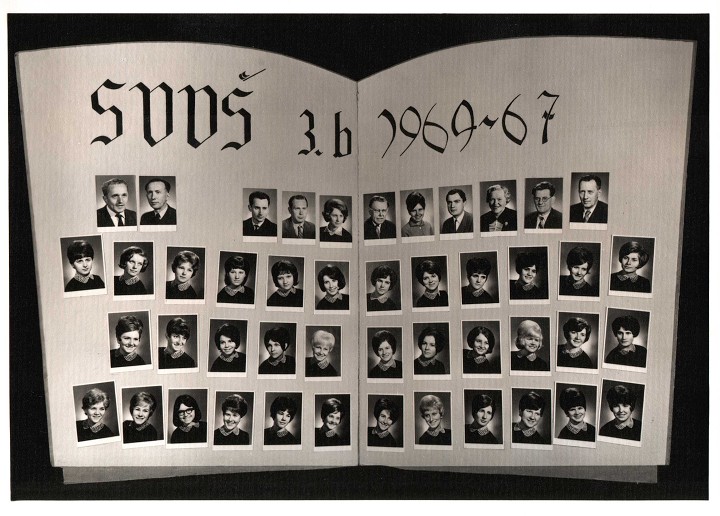 SVVŠ 3.b 1964-67